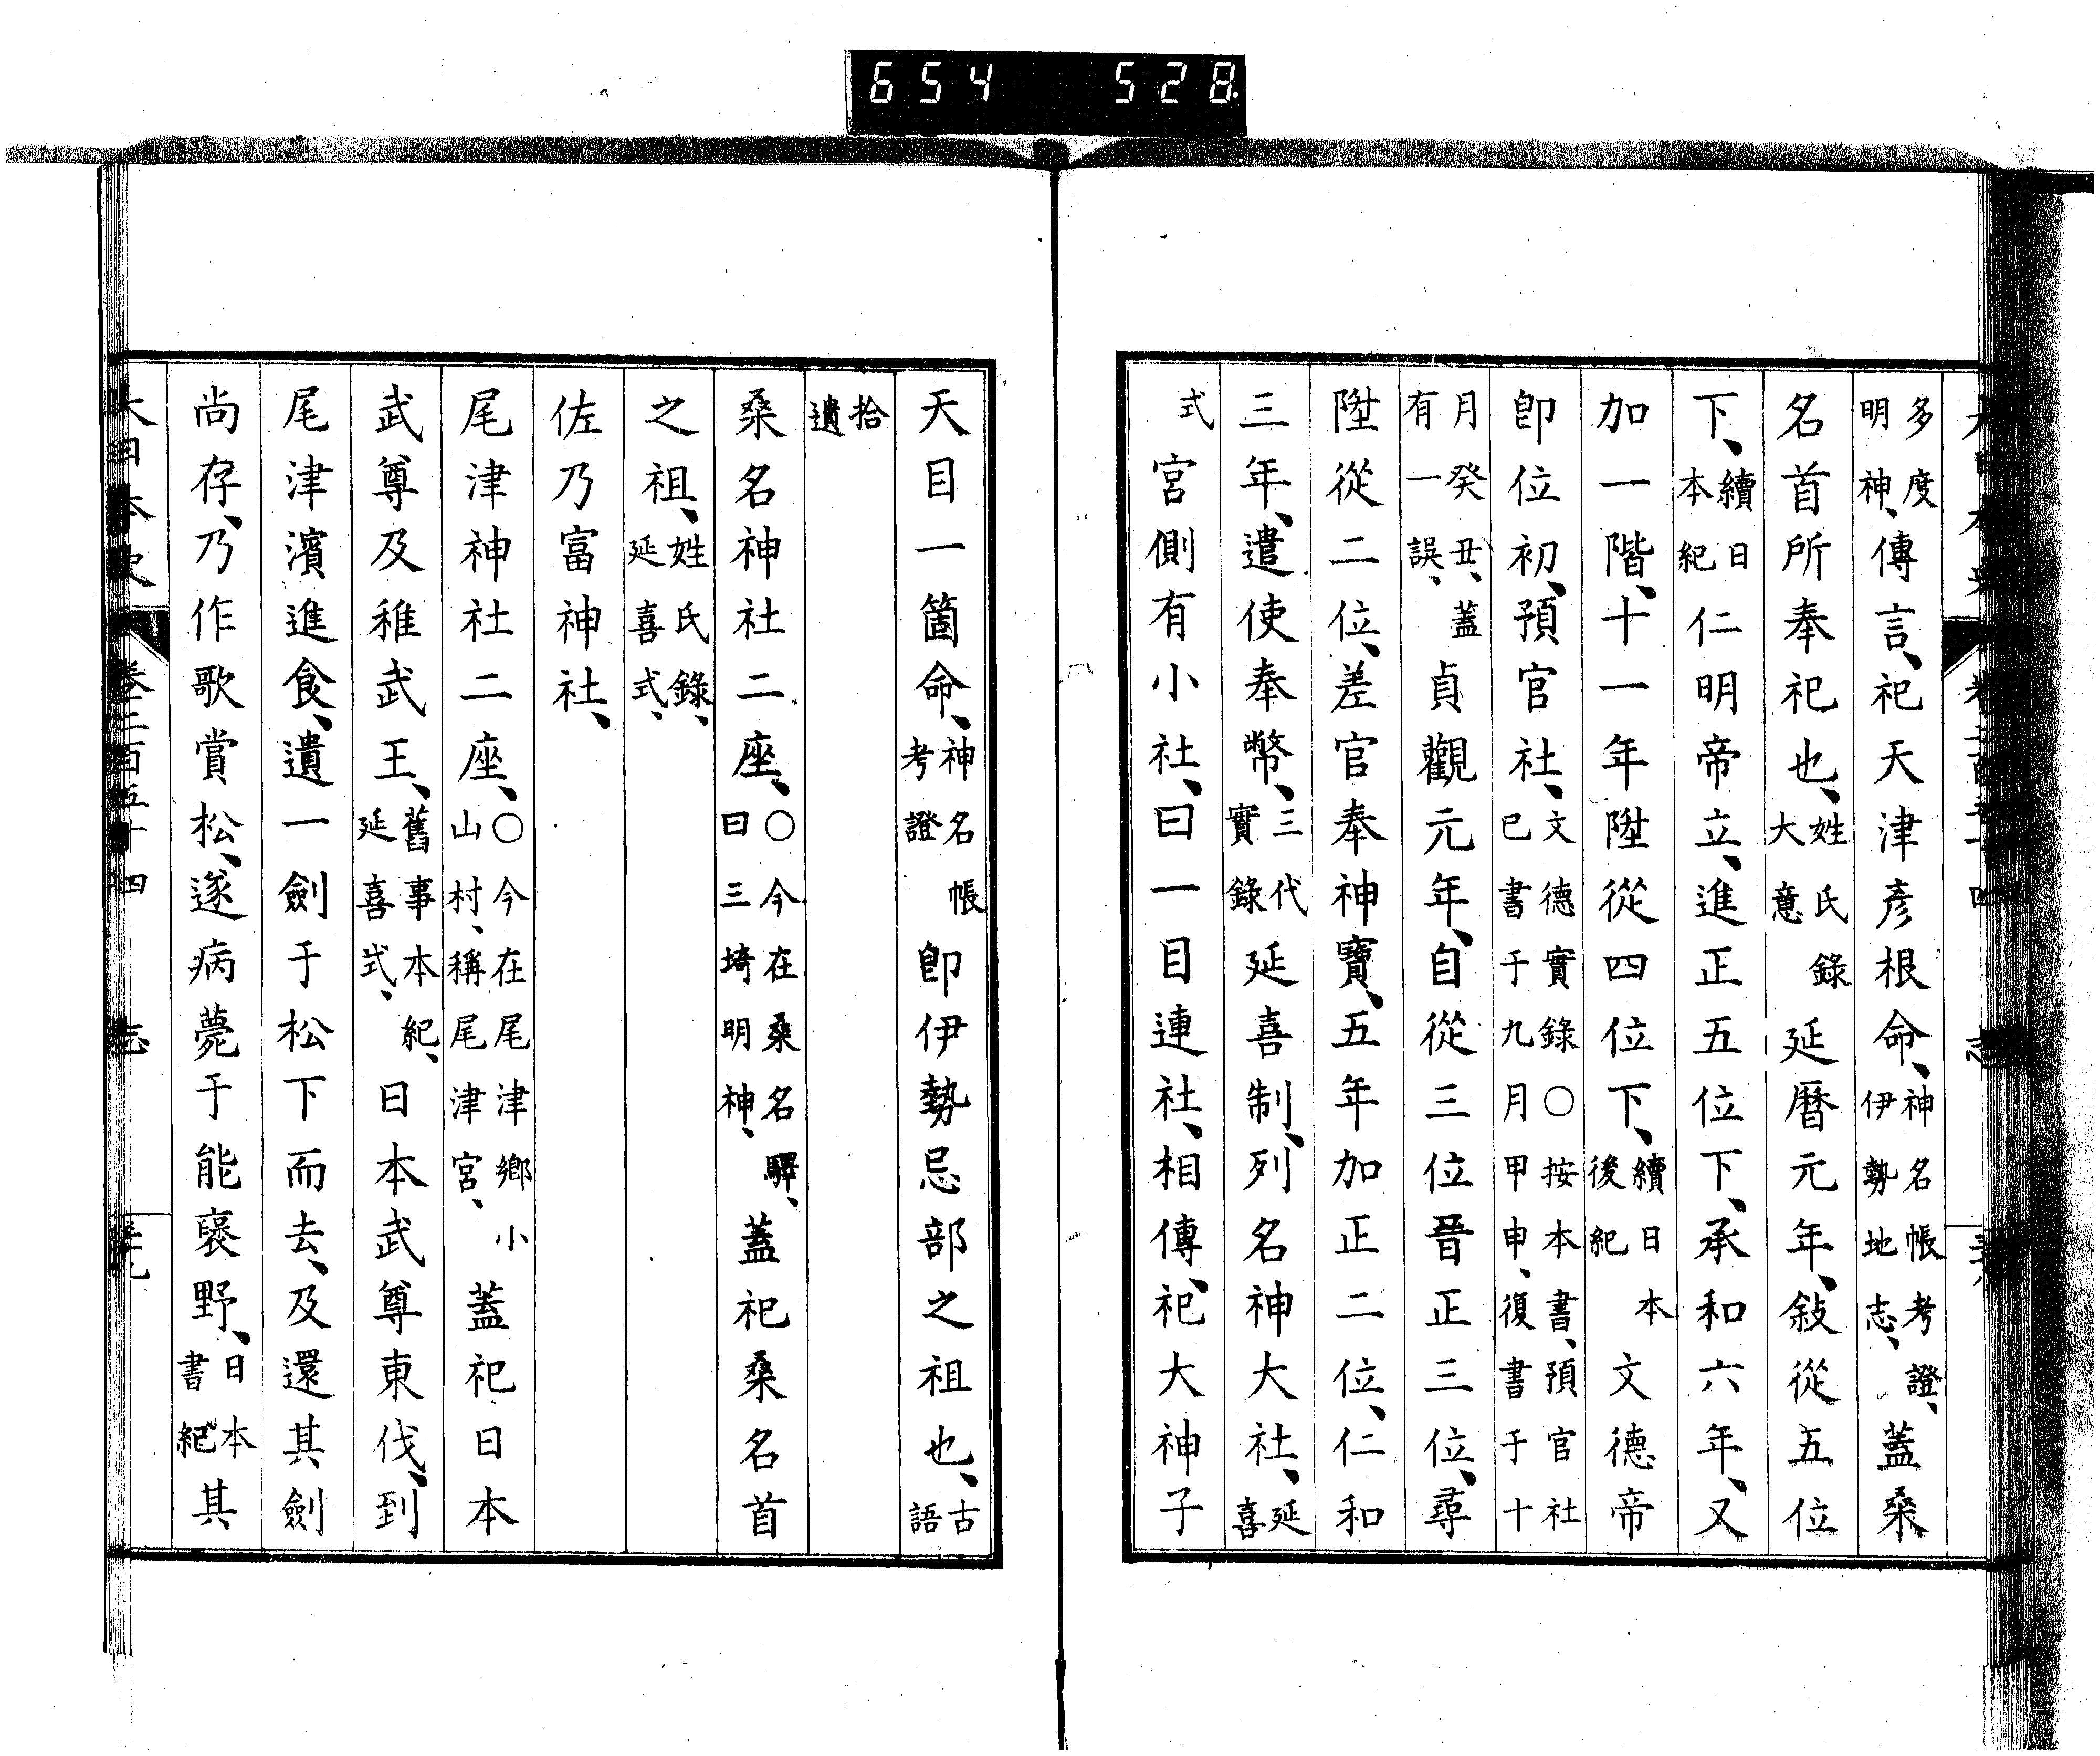 654 528
多度明神、傳言、祀天津彥根命、神名帳考證、伊勢地志、蓋桑
名首所奉祀也、姓氏錄大意延曆元年、敍從五位
下、續日本紀仁明帝立、進正五位下、承和六年、又
加一階、十一年陞從四位下、續日本後紀文德帝
卽位初、預官社、文德實錄〇按本書、預官社已書于九月甲申、復書于十
月癸丑、蓋有一誤、貞觀元年、自從三位晉正三位、尋
陞從二位、差官奉神寶、五年加正二位、仁和
三年、遣使奉幣、三代實錄延喜制、列名神大社、延喜
式宮側有小社、曰一目連社、相傳、祀大神子
天目一箇命、神名帳考證卽伊勢忌部之祖也、古語
拾遺
桑名神社二座、〇今在桑名驛、曰三埼明神、蓋祀桑名首
之祖、姓氏錄、延喜式、
佐乃富神社、
尾津神社二座、〇今在尾津鄉小山村、稱尾津宮、蓋祀日本
武尊及稚武王、舊事本紀、延喜式、日本武尊東伐、到
尾津濱進食、遺一劍于松下而去、及還其劍
尚存、乃作歌賞松、遂病薨于能褒野、日本書紀其
大日本史 卷二百五十四 志